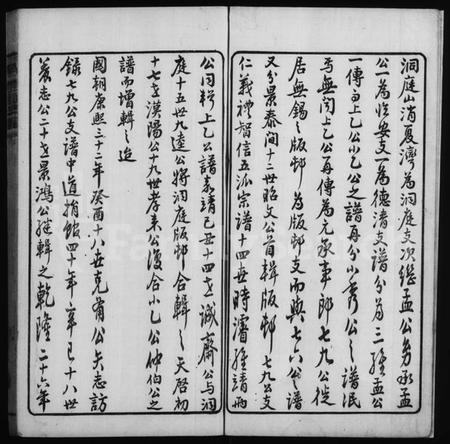 洞庭山消夏灣為洞庭支次繼孟公分承孟
公一為临安支一為德清支譜分為三繼孟公
一傳而上乙公小乙公之譜再分小秀公之譜泯
焉無聞上乙公再傳為元承事郎七九公徙
居無錫之版邨為版邨支而與七六公之譜
又分景泰間十二世昭文公首輯版邨七九公支
仁義禮智信五派宗譜十四世時濬維請兩
公同輯上乙公譜嘉靖己丑十四世誠齋公与洞
庭十五世九逵公將洞庭版邨合輯之天啓初
十七世漢陽公十九世孝來公復合小乙公仲伯公之
譜而增輯之迨
國朝康熙三十二年癸酉十八世克甫公矢志訪
錄七九公支譜中道捐館四十年辛巳十八世
養志公二十世景鴻公继輯之乾隆二十六年